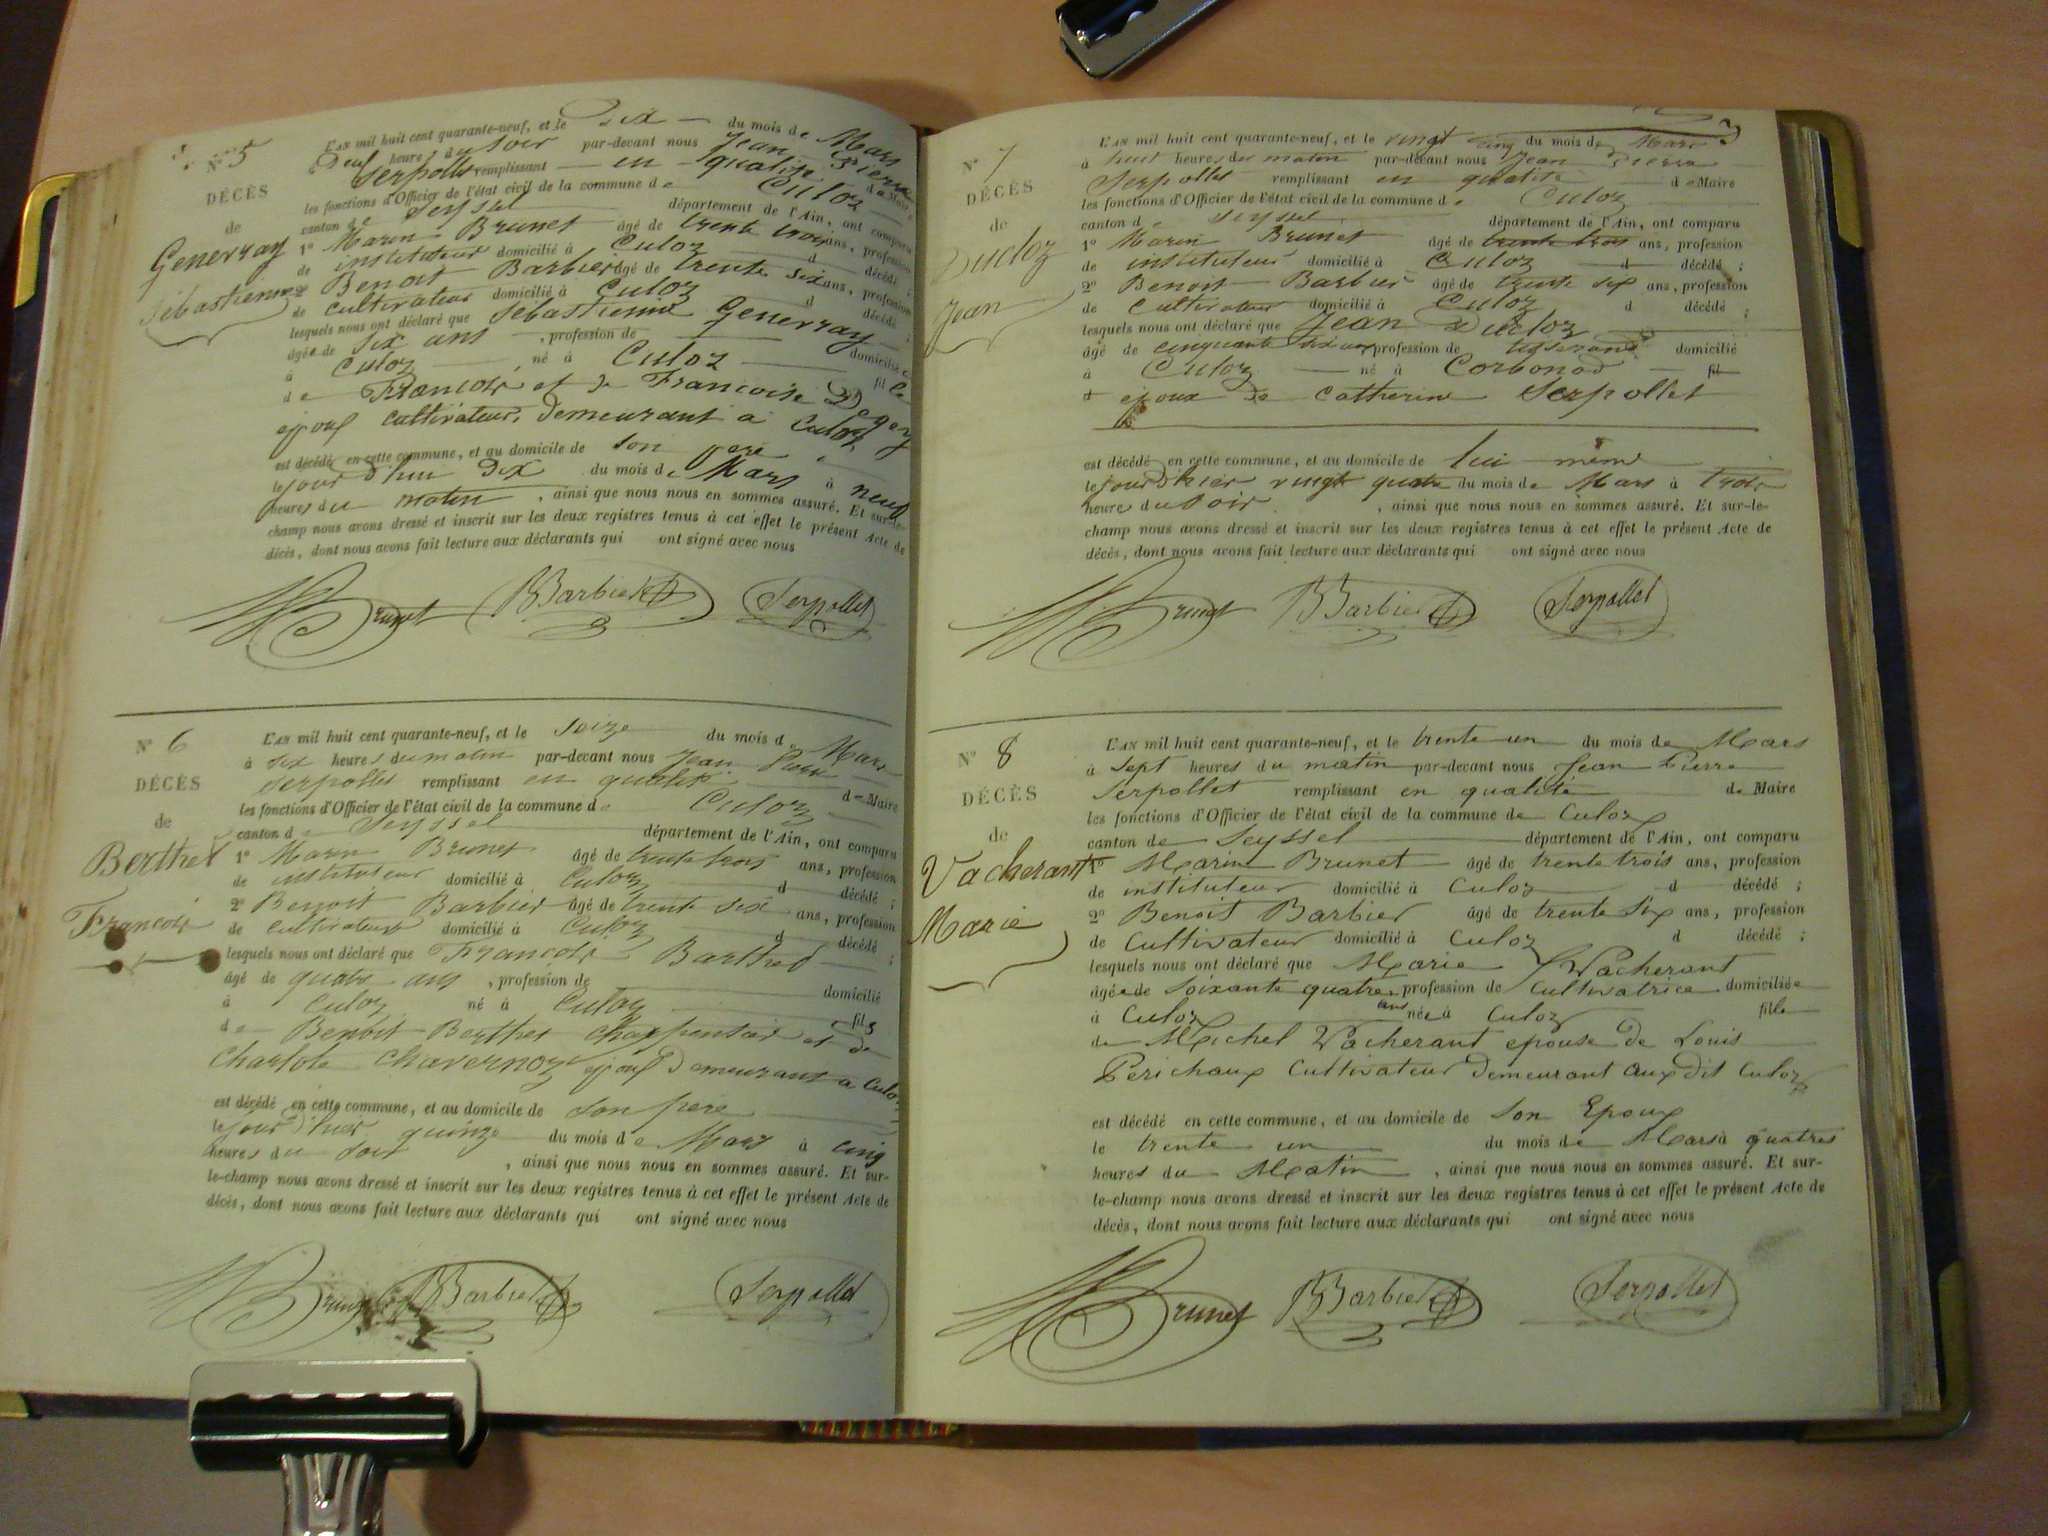 N° 5
DÉCÈS
de
Generray
Sebastienne
L'AN mil huit cent quarante-neuf, et le Dix du mois de Mars
heures du soir par-devant nous Jean Pierre
Serpollet remplissant en qualité de Maire
les fonctions d'Officier de l'état civil de la commune de Culoz
canton de Seyssel département de l'Ain, ont comparu
1° Marin Brunet âgé de trente trois ans, profession
de instituteur domicilié à Culoz d décédé ;
2° Benoit Barbier âgé de trente six ans, profession
de cultivateur domicilié à Culoz d décédé ;
lesquels nous ont déclaré que Sebastienne Generray
âgée de six ans , profession de domicilié
à Culoz né à Culoz fille
de François et de Françoise
epoux cultivateurs, demeurant a Culoz
est décédé en cette commune, et au domicile de son pere
le jour d'hui Dix du mois de Mars à neuf
heures du matin , ainsi que nous nous en sommes assuré. Et sur-le-
champ nous avons dressé et inscrit sur les deux registres tenus à cet effet le présent Acte de
décès, dont nous avons fait lecture aux déclarants qui ont signé avec nous
MBrunet BBarbier Serpollet
N° 6
DÉCÈS
de
Berthet
François
L'AN mil huit cent quarante-neuf, et le seize du mois de Mars
à six heures du matin par-devant nous Jean Pierre
Serpollet remplissant en qualité de Maire
les fonctions d'Officier de l'état civil de la commune de Culoz
canton de Seyssel département de l'Ain, ont comparu
1° Marin Brunet âgé de trente trois ans, profession
de instituteur domicilié à Culoz d décédé ;
2° Benoit Barbier âgé de trente six ans, profession
de cultivateur domicilié à Culoz d décédé ;
lesquels nous ont déclaré que François Barthet
âgé de quatre ans , profession de domicilié
à Culoz né à Culoz fils
de Benoit Berthet charpentier et de
Charlote Chavernoz epoux Demeurant a Culoz
est décédé en cette commune, et au domicile de son pere
le jour d'hier quinze du mois de Mars à cinq
heures du soir , ainsi que nous nous en sommes assuré. Et sur-
le-champ nous avons dressé et inscrit sur les deux registres tenus à cet effet le présent Acte de
décès, dont nous avons fait lecture aux déclarants qui ont signé avec nous
MBrunet BBarbier Serpollet
3
N° 7
DÉCÈS
de
Ducloz
Jean
L'AN mil huit cent quarante-neuf, et le vingt cinq du mois de Mars
à huit heures du matin par-devant nous Jean Pierre
Serpollet remplissant en qualité de Maire
les fonctions d'Officier de l'état civil de la commune de Culoz
canton de Seyssel département de l'Ain, ont comparu
1° Marin Brunet âgé de trente trois ans, profession
de instituteur domicilié à Culoz d décédé ;
2° Benoit Barbier âgé de trente six ans, profession
de cultivateur domicilié à Culoz d décédé ;
lesquels nous ont déclaré que Jean Ducloz
âgé de cinquante six ans profession de tisserand domicilié
à Culoz né à Corbonod fil
d epoux de Catherine Serpollet
est décédé en cette commune, et au domicile de lui même
le jour d'hier vingt quatre du mois de Mars à trois
heure du soir , ainsi que nous nous en sommes assuré. Et sur-le-
champ nous avons dressé et inscrit sur les deux registres tenus à cet effet le présent Acte de
décès, dont nous avons fait lecture aux déclarants qui ont signé avec nous
MBrunet BBarbier Serpollet
N° 8
DÉCÈS
de
Vacherant
Marie
L'AN mil huit cent quarante-neuf, et le trente un du mois de Mars
à sept heures du matin par-devant nous Jean Pierre
Serpollet remplissant en qualité de Maire
les fonctions d'Officier de l'état civil de la commune de Culoz
canton de Seyssel département de l'Ain, ont comparu
1° Marin Brunet âgé de trente trois ans, profession
de instituteur domicilié à Culoz d décédé ;
2° Benoit Barbier âgé de trente six ans, profession
de Cultivateur domicilié à Culoz d décédé ;
lesquels nous ont déclaré que Marie Vacherant
âgée de soixante quatre ans profession de Cultivatrice domiciliée
à Culoz née à Culoz fille
de Michel Vacherant epouse de Louis
Perichaux Cultivateur Demeurant aux dit Culoz
est décédé en cette commune, et au domicile de son Epoux
le trente un du mois de Mars à quatres
heures du Matin , ainsi que nous nous en sommes assuré. Et sur-
le-champ nous avons dressé et inscrit sur les deux registres tenus à cet effet le présent Acte de
décès, dont nous avons fait lecture aux déclarants qui ont signé avec nous
MBrunet BBarbier Serpollet